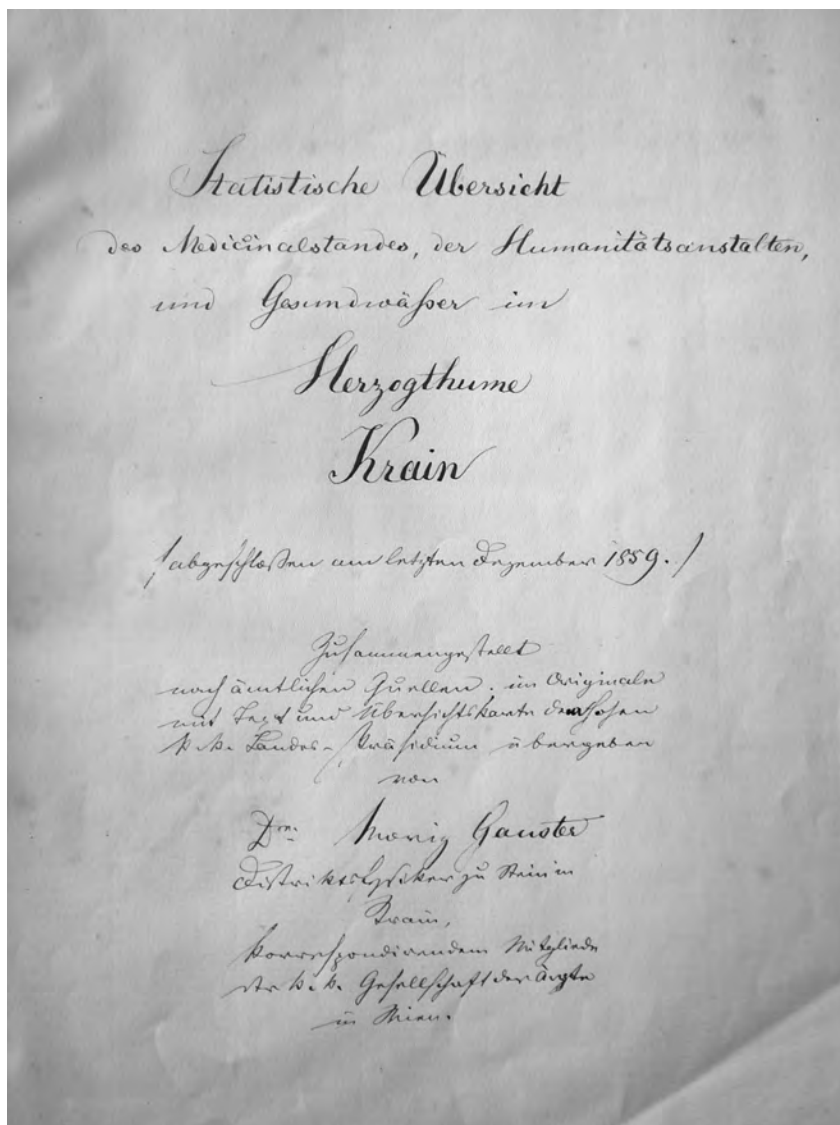 Statistische Übersicht
des Medicinalstandes, der Humanitätsanstalten,
und Gesundwäßer im
Herzogthume
Krain
/abgeschloßen am letzten Dezember 1859./
Zusammengestellt
nach ämtlichen Quellen. im Originale
mit Text und Übersichtskarte dem hohen
k. k. Landes-Präsidium übergeben
von
Dr. Moriz Gauster
Distriktsphysiker zu Stein in
Krain,
korrespondirendem Mitgliede
der k. k. Gesellschaft der Ärzte
in Wien.